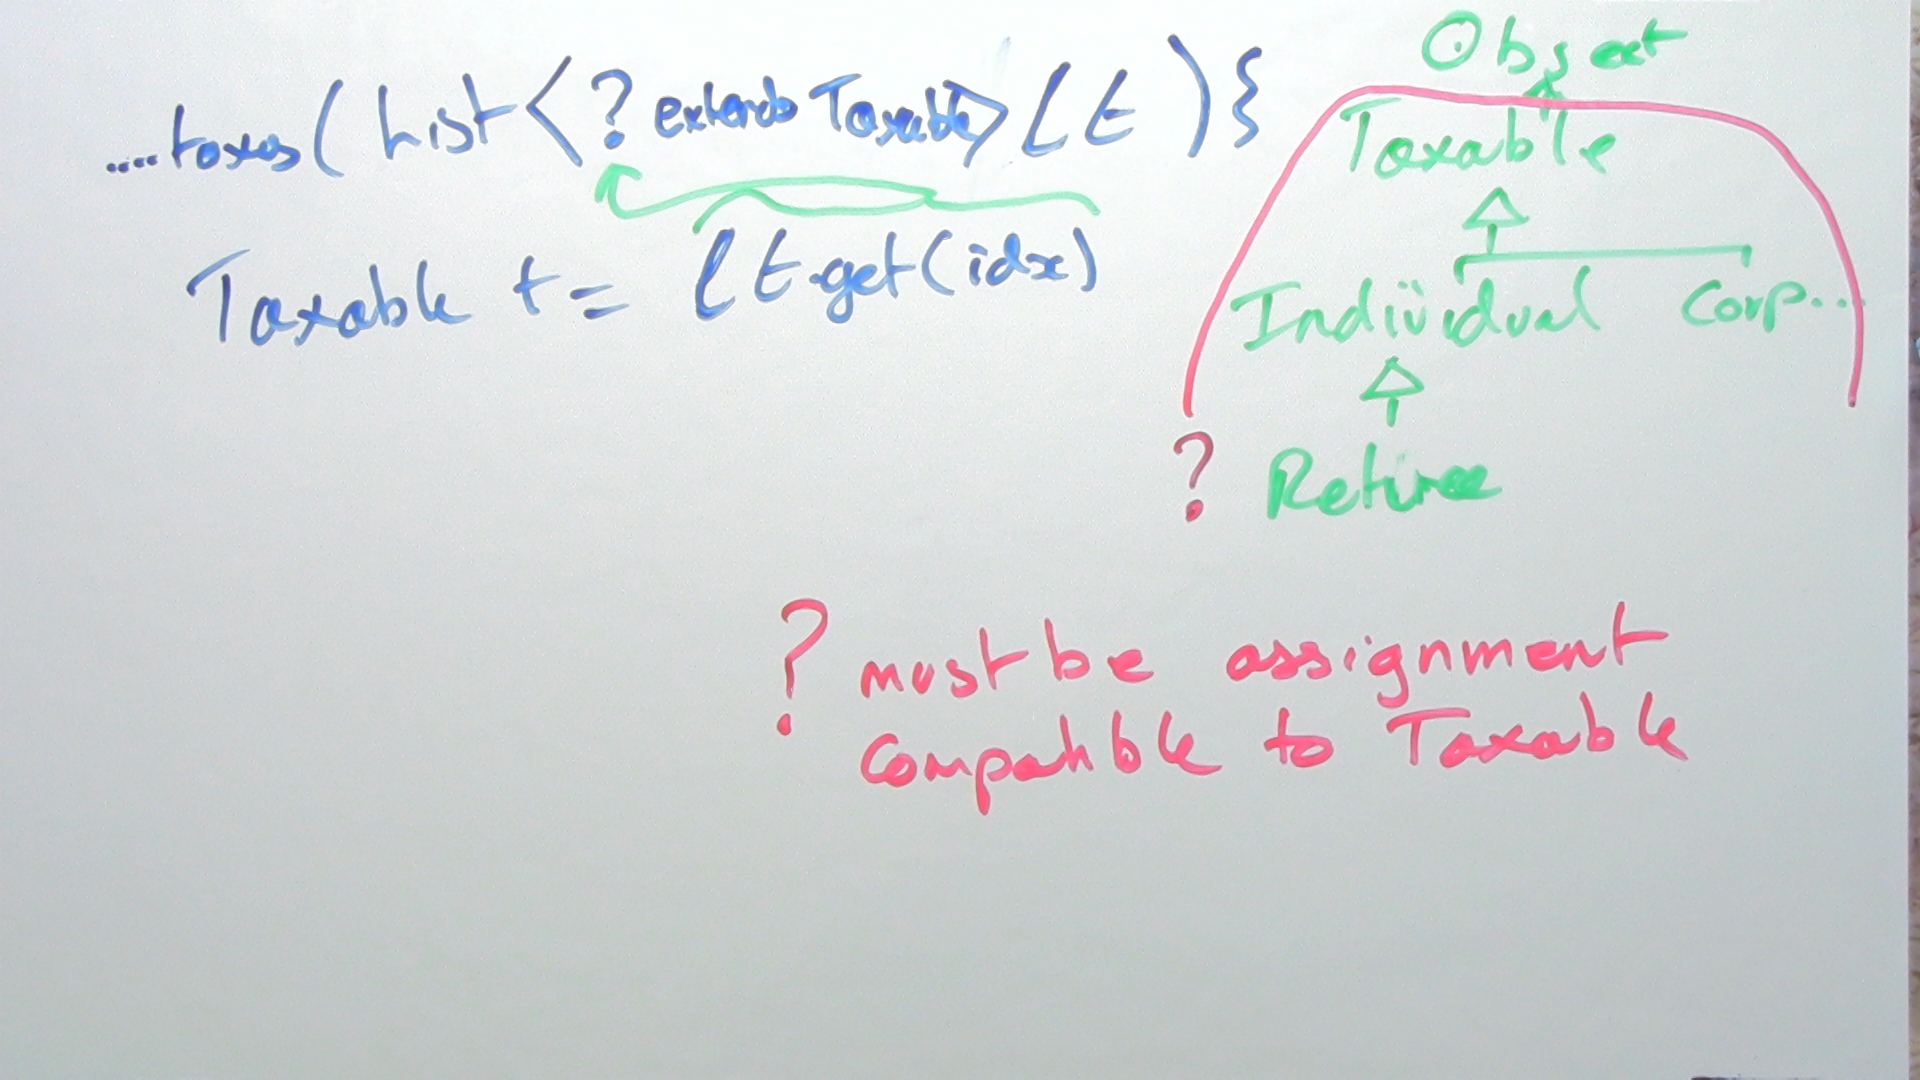 ....taxes(List<? extends Taxable> lt){
Taxable t = lt.get(idx)
Object
Taxable
Individual Corp...
? Retiree
? must be assignment
compatible to Taxable